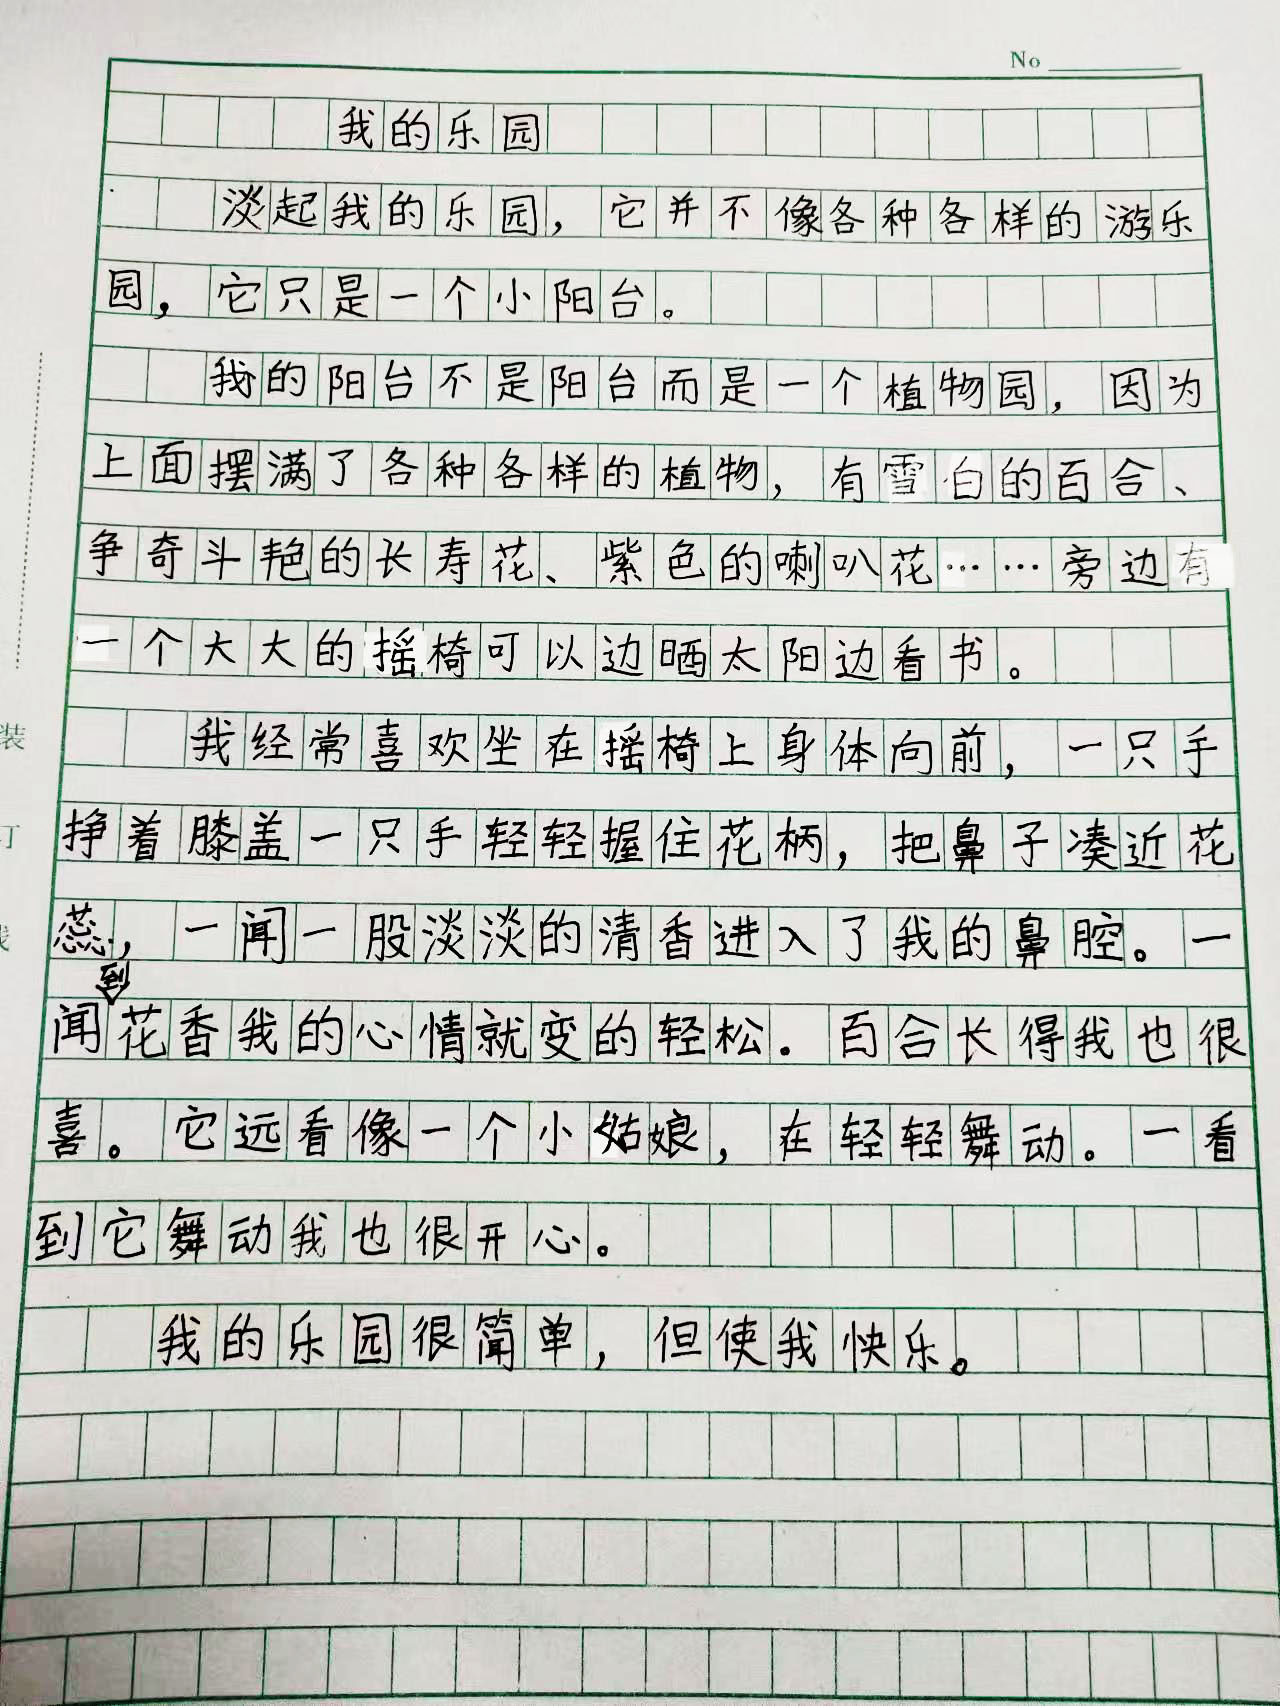 No
我的乐园
淡起我的乐园，它并不像各种各样的游乐
园，它只是一个小阳台。
我的阳台不是阳台而是一个植物园，因为
上面摆满了各种各样的植物，有雪白的百合、
争奇斗艳的长寿花、紫色的喇叭花……旁边有
一个大大的摇椅可以边晒太阳边看书。
我经常喜欢坐在摇椅上身体向前，一只手
挣着膝盖一只手轻轻握住花柄，把鼻子凑近花
蕊，一闻一股淡淡的清香进入了我的鼻腔。一
闻到花香我的心情就变的轻松．百合长得我也很
喜。它远看像一个小姑娘，在轻轻舞动。一看
到它舞动我也很开心。
我的乐园很简单，但使我快乐。
装
订